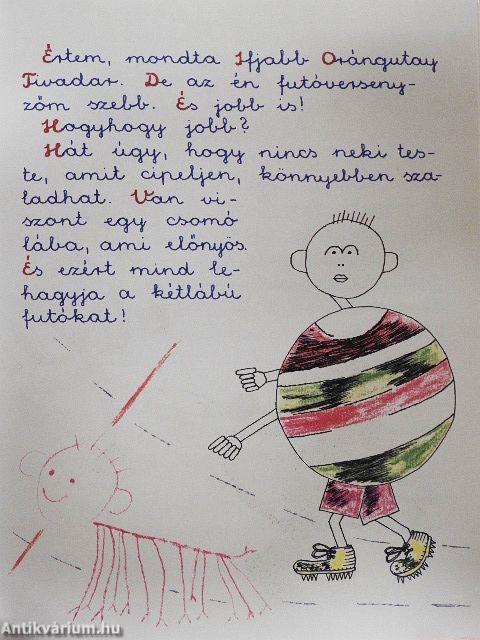 Értem, mondta Ifjabb Orángutay
Tivadar. De az én futóverseny-
zőm szebb. És jobb is!
Hogyhogy jobb?
Hát úgy, hogy nincs neki tes-
te, amit cipeljen, könnyebben sza-
ladhat. Van vi-
szont egy csomó
lába, ami előnyös.
És ezért mind le-
hagyja a kétlábú
futókat!
Antikvárium.hu